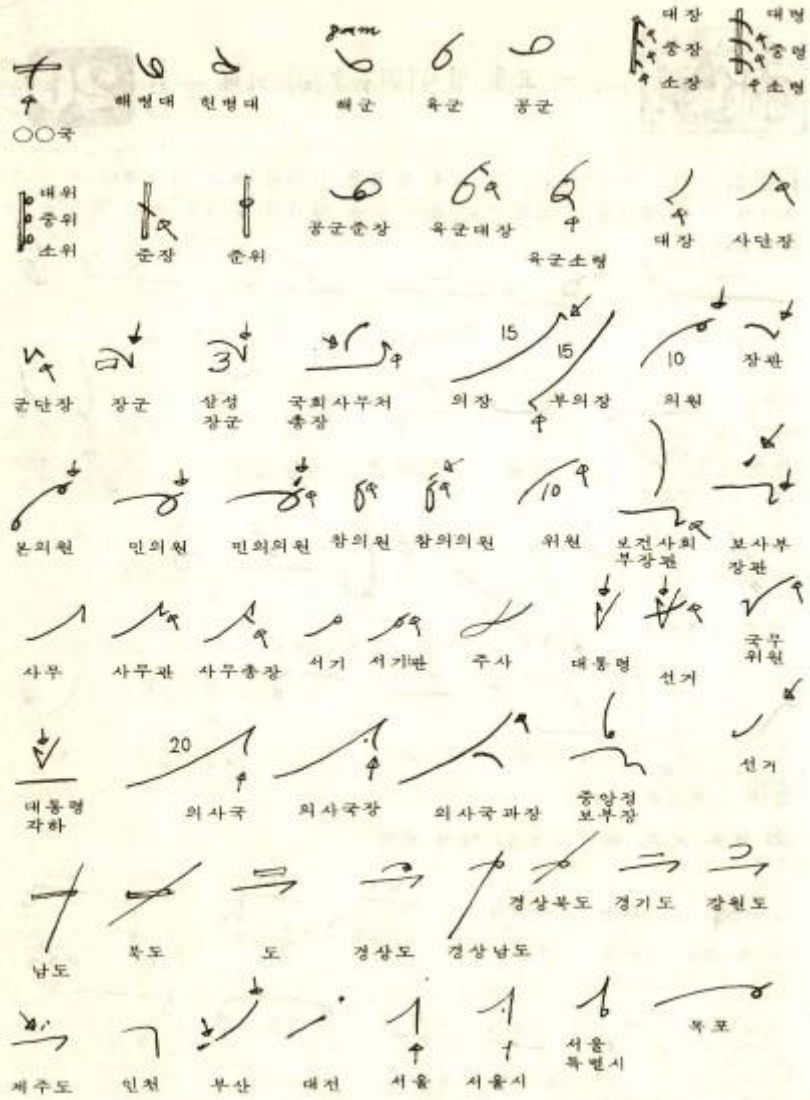 gram
대장 대령
중장 중령
소장 소령
해병대 헌병대 해군 육군 공군
○○국
대위
중위
소위
준장 준위 공군준장 육군대장 육군소령 대장 사단장
15 15 10
군단장 장군 삼성 장군 국회사무처 총장 의장 부의장 의원 장관
10
본의원 민의원 민의의원 참의원 참의의원 위원 보건사회 부장관 보사부 장관
사무 사무관 사무총장 서기 서기관 주사 대통령 선거 국무 위원
20
대통령 각하 의사국 의사국장 의사국과장 중앙정 보부장 선거
남도 북도 도 경상도 경상남도 경상북도 경기도 강원도
제주도 인천 부산 대전 서울 서울시 서울 특별시 목포